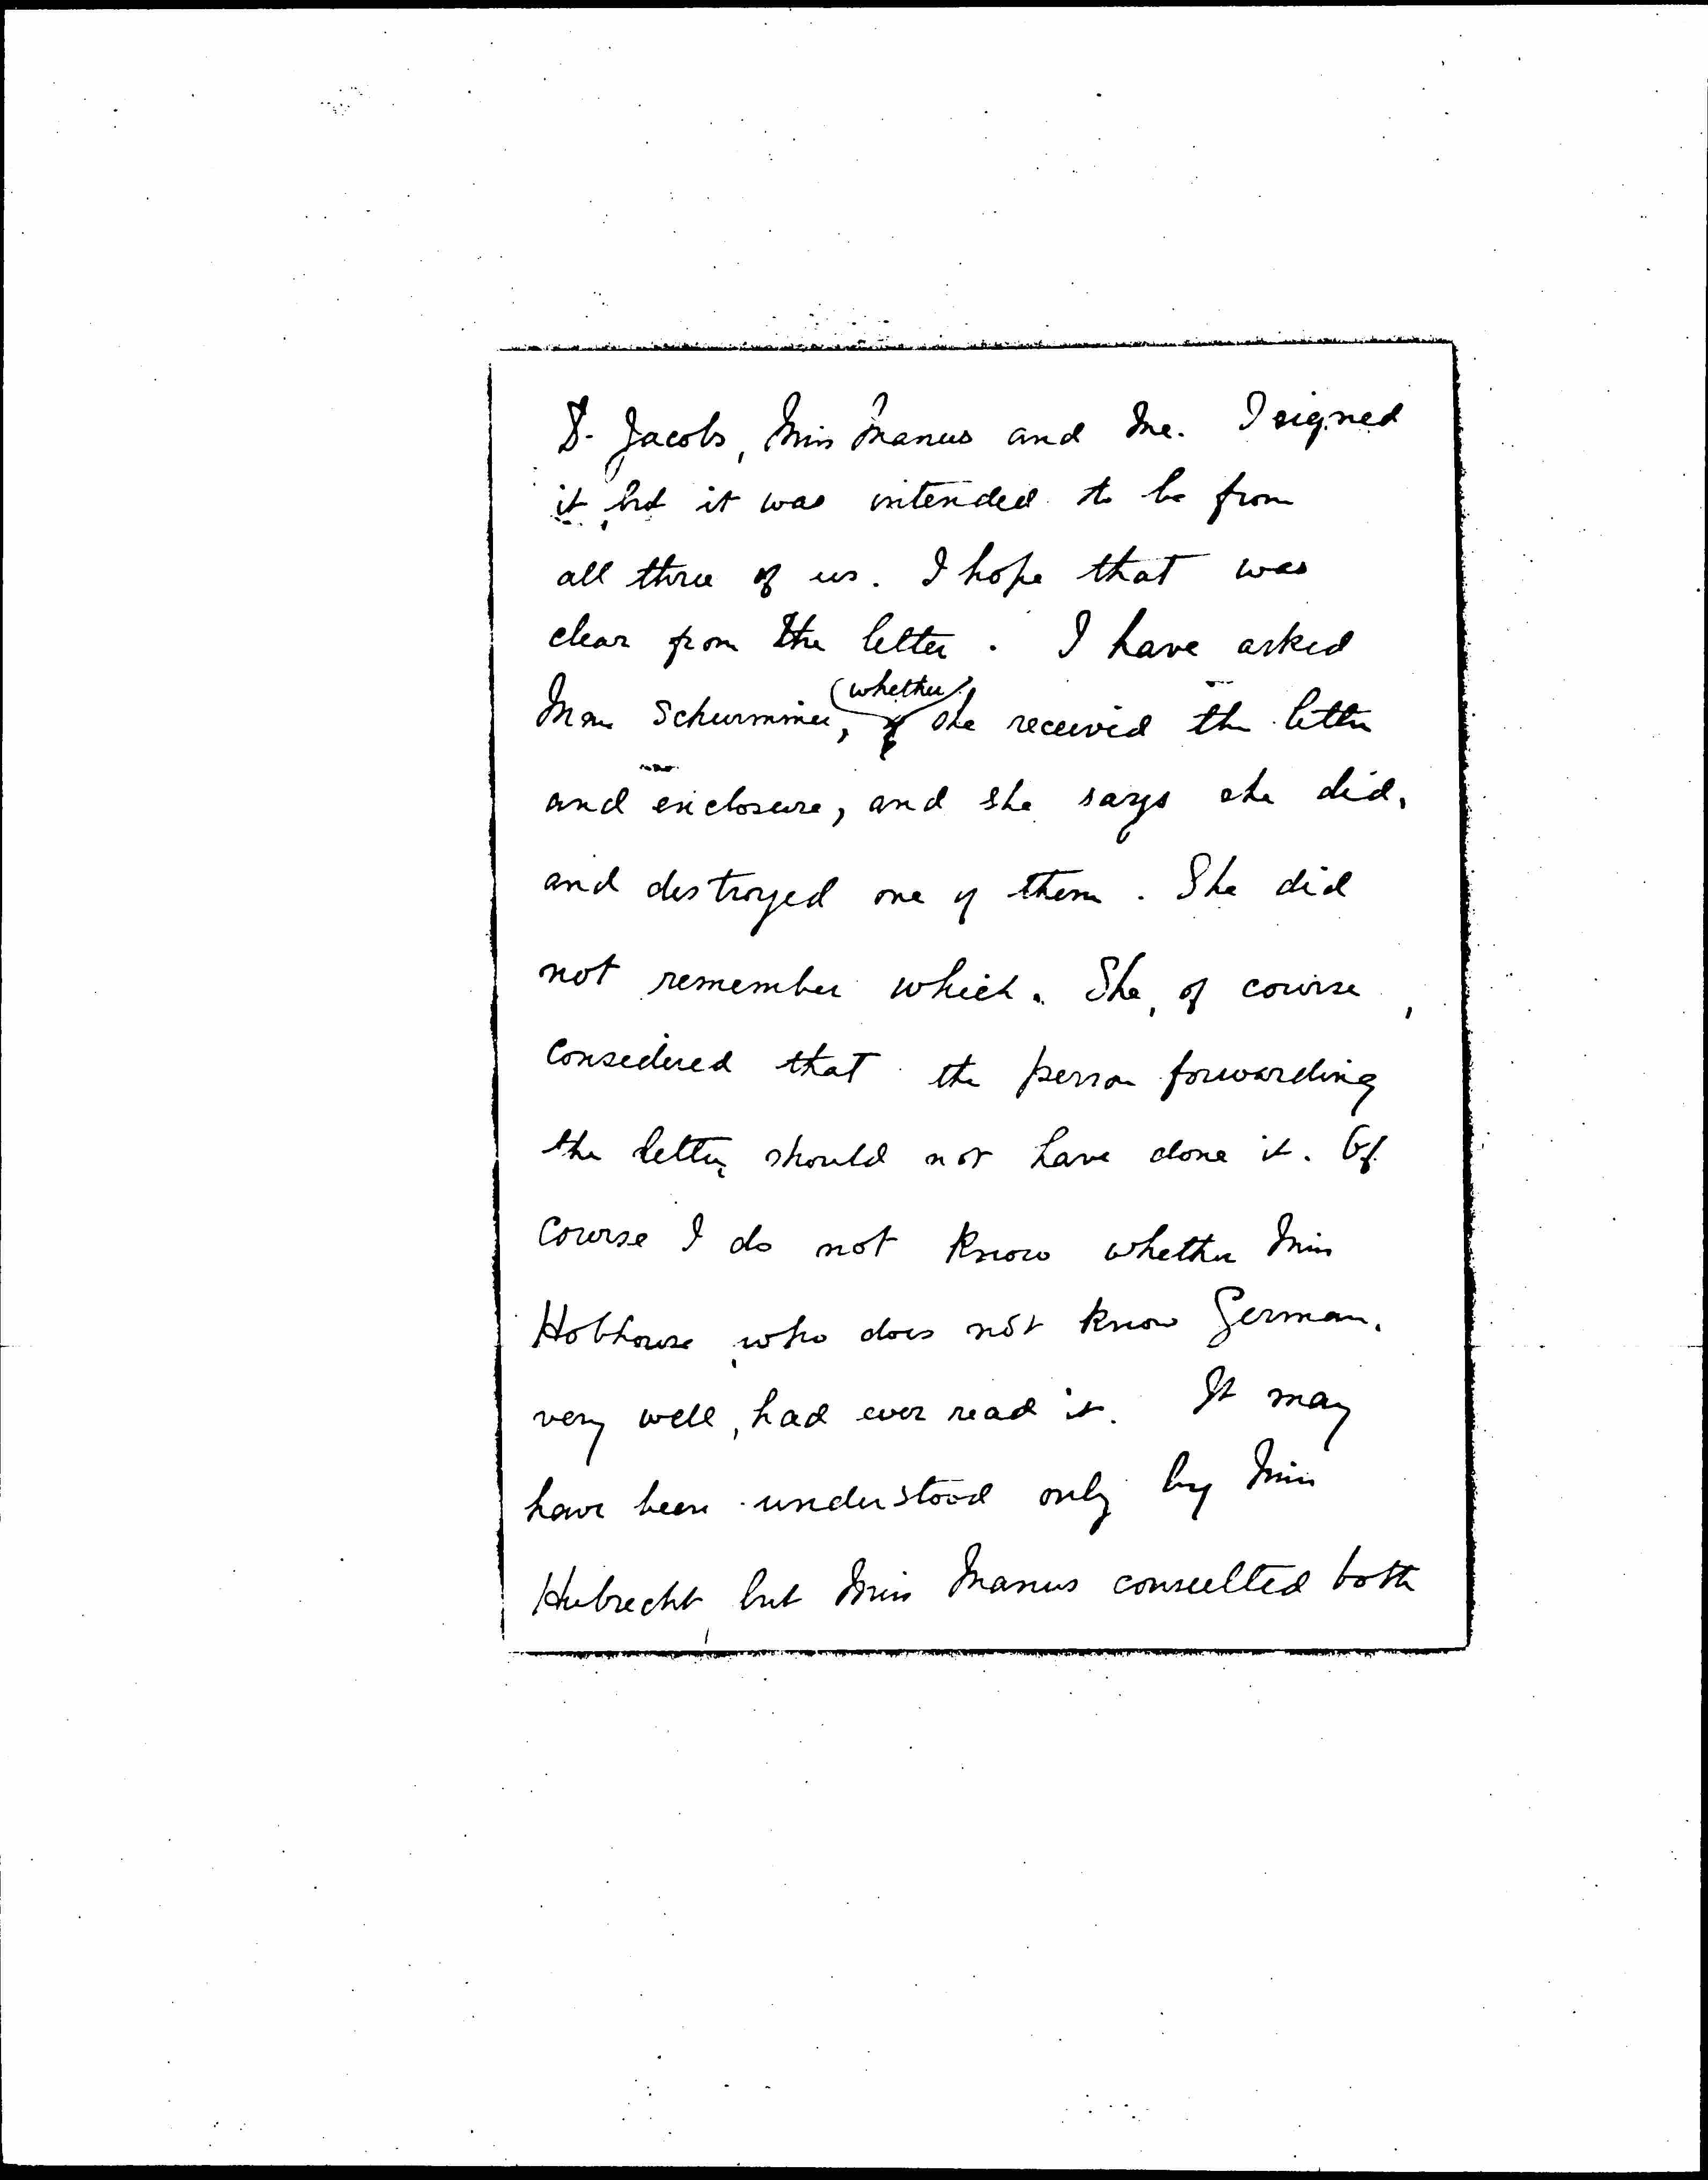 Dr. Jacobs, Miss Manus and me. I signed
it, but it was intended to be from
all three of us. I hope that was
clear from the letter. I have asked
Mme Schwimmer, whether she received the letter
and enclosure, and she says she did,
and destroyed one of them. She did
not remember which. She, of course,
considered that the person forwarding
the letter, should not have done it. Of
course I do not know whether Miss
Hobhouse, who does not know German,
very well, had ever read it. It may
have been understood only by Miss
Hubrecht, but Miss Manus consulted both